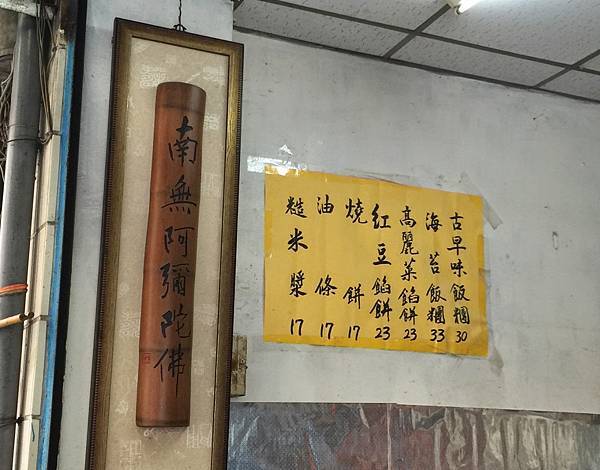 南無阿彌陀佛
古早味飯糰 30
海苔飯糰 33
高麗菜餡餅 23
紅豆餡餅 23
燒餅 17
油條 17
糙米漿 17